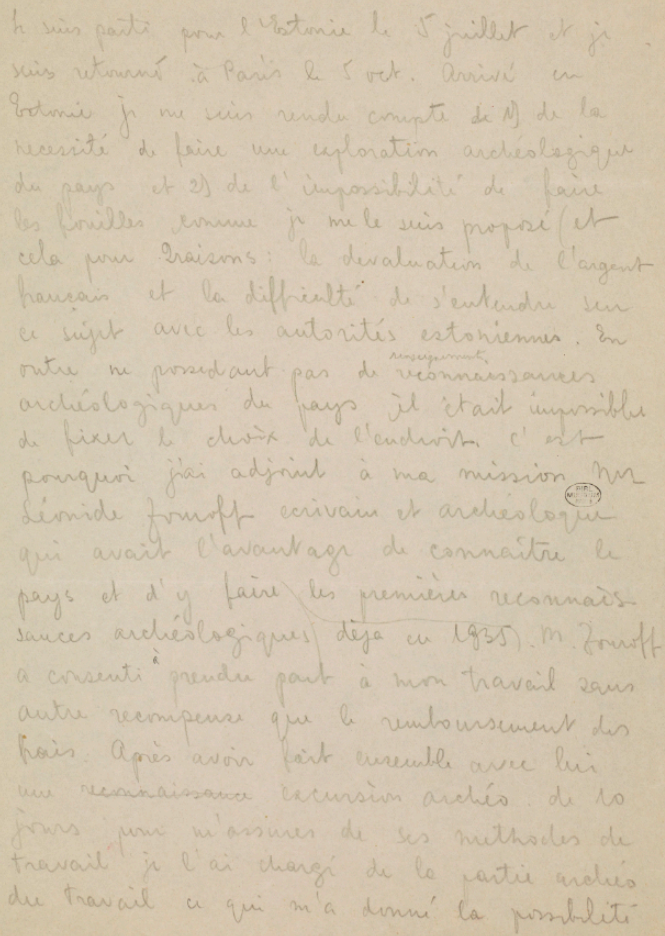 Je suis parti pour l'Estonie le 5 juillet et je
suis retourné à Paris le 5 oct. Arrivé en
Estonie je me suis rendu compte de 1) de la
necessité de faire une exploration archéologique
du pays et 2) de l'impossibilité de faire
les fouilles comme je me le suis proposé (et
cela pour 2 raisons: la devaluation de l'argent
français et la difficulté de s'entendre sur
ce sujet avec les autorités estoniennes. En
outre ne possedant pas de renseignements reconnaissances
archéologiques du pays il était impossible
de fixer le choix de l'endroit. C'est
pourquoi j'ai adjoint à ma mission Mr
Léonide Zouroff ecrivain et archéologue
qui avait l'avantage de connaître le
pays et d'y faire les premières reconnais
sances archéologiques déja en 1935). M. Zouroff
a consenti à prendre part à mon travail sans
autre recompense que le remboursement des
frais. Après avoir fait ensemble avec lui
une reconnaissance excursion archéo. de 10
jours pour m'assurer de ses methodes de
travail je l'ai chargé de la partie archéo
du travail ce qui m'a donné la possibilité